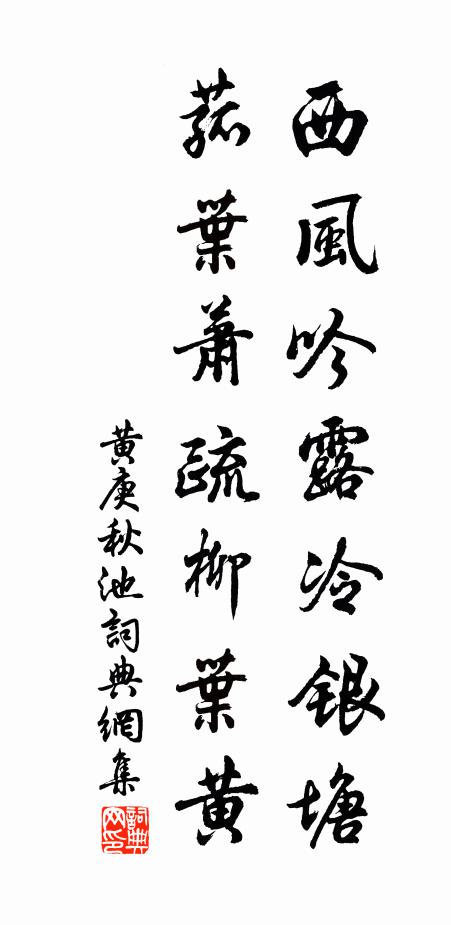 西風吟露冷銀塘
菰葉蕭疏柳葉黃
黃庚秋池詞典網集
詞典網印